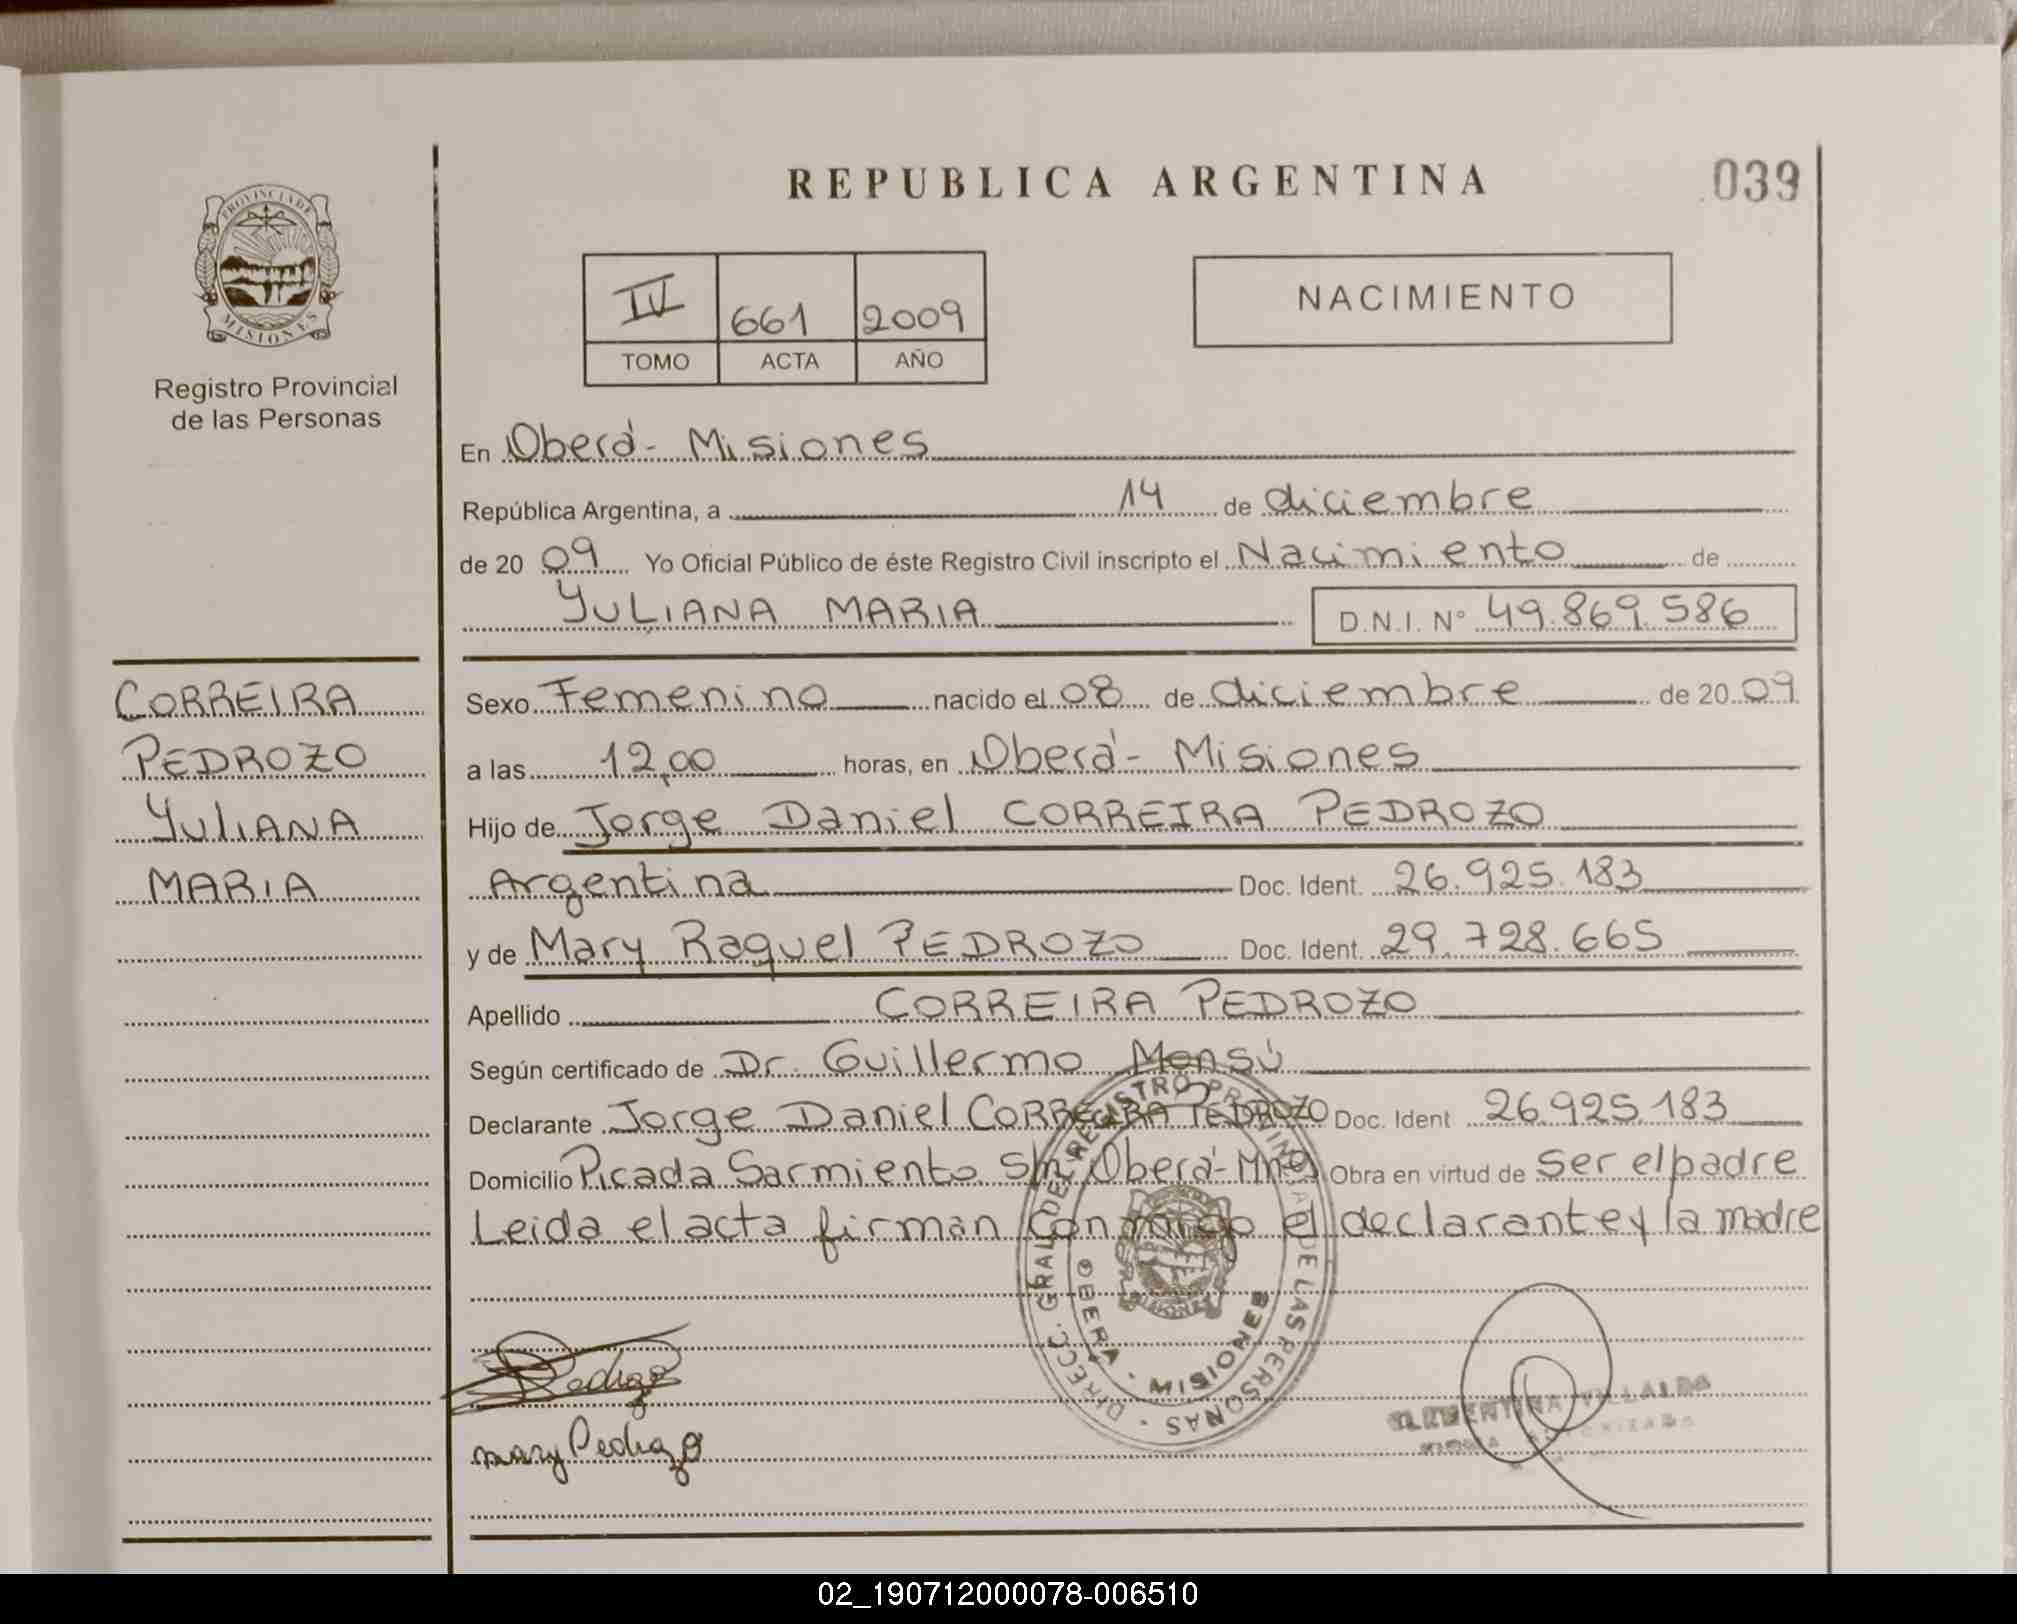 REPUBLICA ARGENTINA
039
PROVINCIA DE
MISIONES
Registro Provincial
de las Personas
IV 661 2009
TOMO ACTA AÑO
NACIMIENTO
En Oberá - Misiones
República Argentina, a 14 de diciembre
de 20 09 Yo Oficial Público de éste Registro Civil inscripto el Nacimiento de
YULIANA MARIA D.N.I. Nº 49.869.586
CORREIRA
PEDROZO
YULIANA
MARIA
Sexo Femenino nacido el 08 de diciembre de 20 09
a las 12,00 horas, en Oberá - Misiones
Hijo de Jorge Daniel CORREIRA PEDROZO
Argentina Doc. Ident. 26.925.183
y de Mary Raquel PEDROZO Doc. Ident. 29.728.665
Apellido CORREIRA PEDROZO
Según certificado de Dr. Guillermo Mensú
Declarante Jorge Daniel CORREIRA PEDROZO Doc. Ident 26.925.183
Domicilio Picada Sarmiento S/n Oberá - Mnes Obra en virtud de ser el padre
Leida el acta firman conmigo el declarante y la madre
DIRECC. GRAL. DEL REGISTRO PROVINCIAL DE LAS PERSONAS
OBERA - MISIONES
Pedrozo
mary Pedrozo
CLEMENTINA VILLALBA
02_190712000078-006510